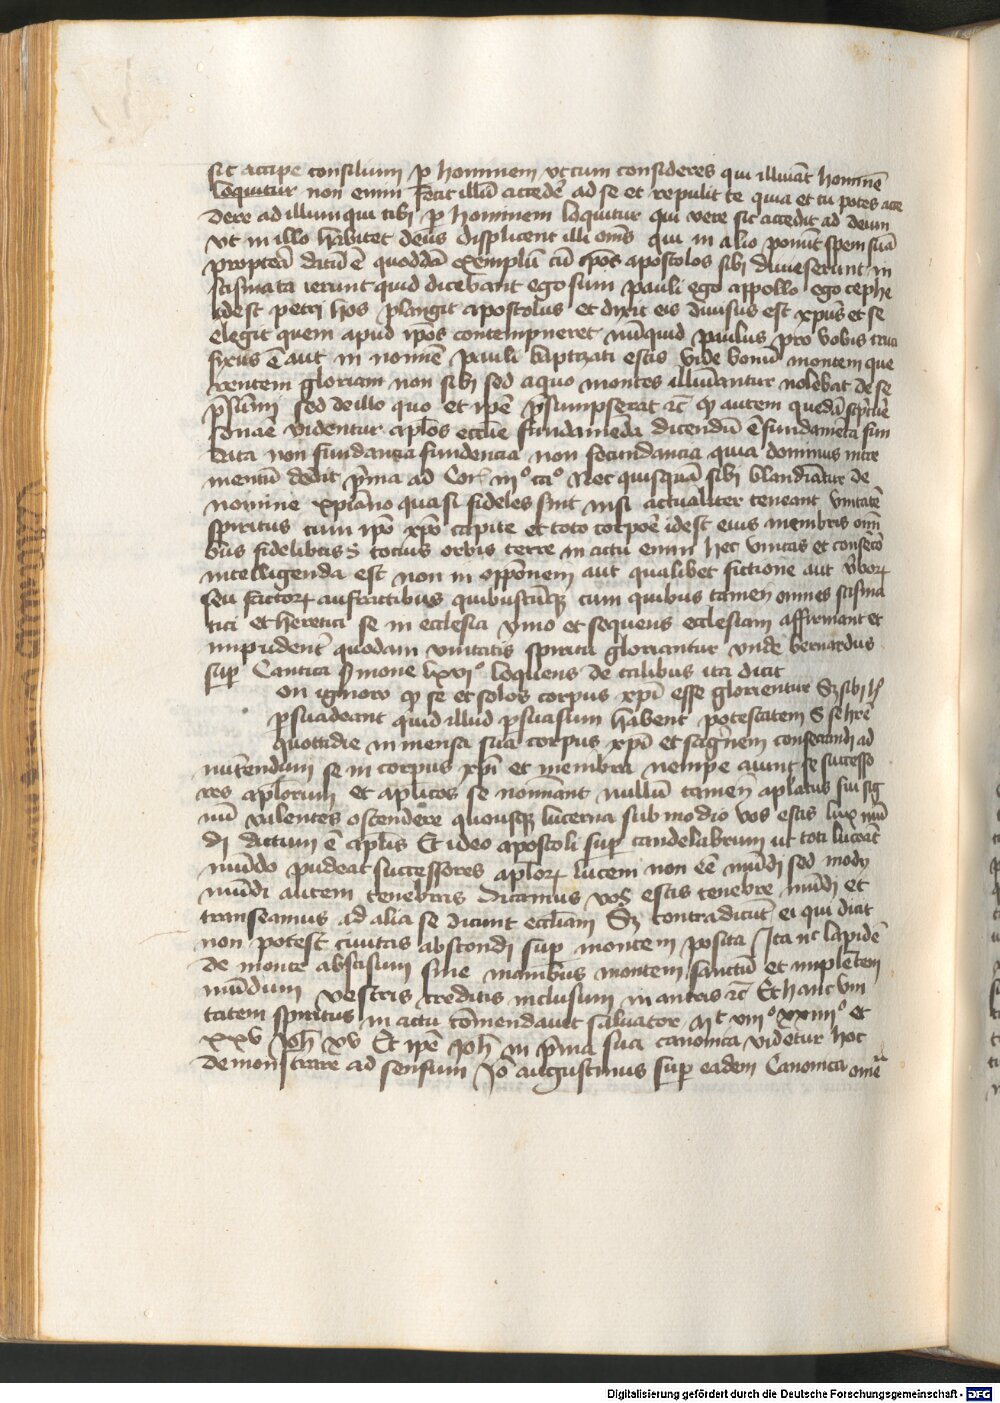 sic accipe consilium ꝑ hominem vt cum consideres qui illuiāt hominē
loquitur non enim fecit illū accedē ad se et repulit te quia et tu potes acce
dere ad illum qui tibi ꝑ hominem loquitur qui vere sic accedit ad deum
vt in illo hābitet deus displicent illi oms qui in alio ponūt spem suā
propterā datū ē quoddā exemplū cū ipos apostolos sibi diuiserunt in
scismata ierunt quid dicebant ego sum pauli ego appollo ego cephe
idest petri hos plangit apostolus et dixit eis diuisus est xpūs et se
elegit quem apud ipōs contempneret nūquid paulus pro vobis cruci
fixus ē aut in nomīe pauli baptizati estis vide bonū montem que
rentem gloriam non sibi sed a quo montes illuīantur nolebat de se
p̄sumi sed de illo quo et ipē p̄sumpserat ꝛc̄ qꝫ autem quedā
sonāē videntur aplos ecctie fundamēta dicendū ē fundamēta fun
data non fundantia fundencia non fecundancia quia dominus incre
mentū dedit p̄ma ad Cor͛ iiiͦ caͦ Nec quisquā sibi blandiātur de
nomine xpiāno quasi fideles sint nisi actualiter teneant vnitatē
spiritus cum ipō xpō capite et toto corpoē idest eius membris omi
bus fidelibus tocius orbis terre in actu enim hec vnitas et
intelligenda est non in oppōnem aut qualibet fictione aut v̄borꝝ
seu factorꝝ anfractibus quibuscūqꝫ cum quibus tamen omnes scisma
tici et heretici se in ecclesia ymo et sequens ecclesiam affirmant et
imprudent͛ quodam vnitatis spiritu gloriantur vnde bernardus
sup̱ Cantica s̄mone lxxviͦ loquens de talibus ita dicit
on ignoro qꝫ se et solos corpus xpī esse glorientur Sꝫ sibi hͦ
ꝑsuadeant quid illud ꝑsuasum habent potestatem se hr̄e
quottidie in mensa sua corpus xpī et sāg̱nem consecrandi ad
nutendum se in corpus xpī et membra nempe aiunt se successo
res aplorum et aplicos se nomīant nullū tamen aplatus sui sig
nū valentes ostendere quousqꝫ lucerna sub modio vos estis lux mū
di dictum ē aplis Et ideo apostoli sup̱ candelabrum ut toti luceāt
mūdo pudeat successores aplorꝝ lucem non eē mūdi sed modij
mūdi autem tenebras dicamus vos estis tenebre mūdi et
transeamus ad alia se dicunt eccliam Sꝫ contradicūt ei qui dicit
non potest ciuitas abscondi sup̱ montem posita Ita nͨ lapidē
de monte abscisum sine manibus montem sanctū et implētem
mūdum vestris creditis inclusum in antris ꝛc̄ Et hanc vni
tatem spiritus in actu cōmendauit saluator Mᵗ viiiͦ xxiiiiͦ et
xxv Joh̄ xv Et ipē Joh̄ in p̄ma sua canonica videtur hoc
demonstrare ad sensum Jō augustinus sup̱ eadem Canonica omē